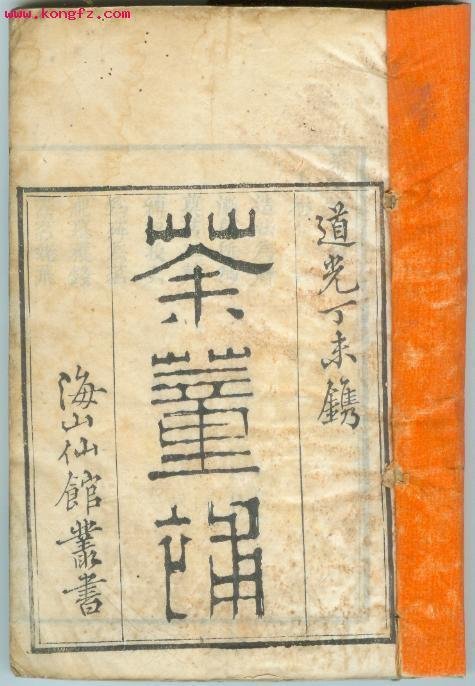 www.kongfz.com
道光丁未鐫
茶董補
海山仙館叢書